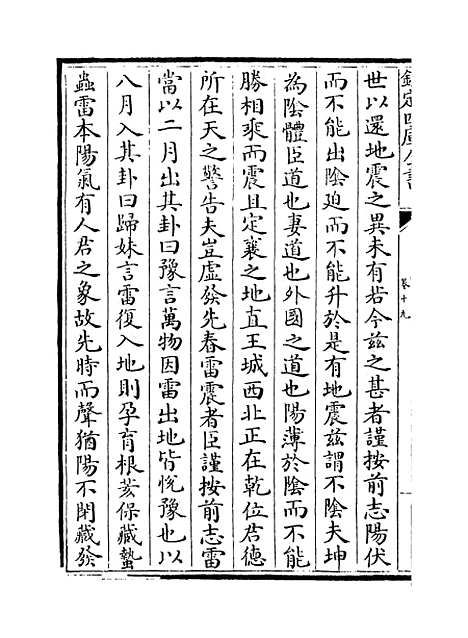 欽定四庫全書
卷十九
世以還地震之異未有若今兹之甚者謹按前志陽伏
而不能出陰迫而不能升於是有地震兹謂不陰夫坤
為陰體臣道也妻道也外國之道也陽薄於陰而不能
勝相乘而震且定襄之地直王城西北正在乾位君德
所在天之警告夫豈虛發先春雷震者臣謹按前志雷
當以二月出其卦曰豫言萬物因雷出地皆悅豫也以
八月入其卦曰歸妹言雷復入地則孕育根荄保藏蟄
蟲雷本陽氣有人君之象故先時而聲猶陽不閉藏發